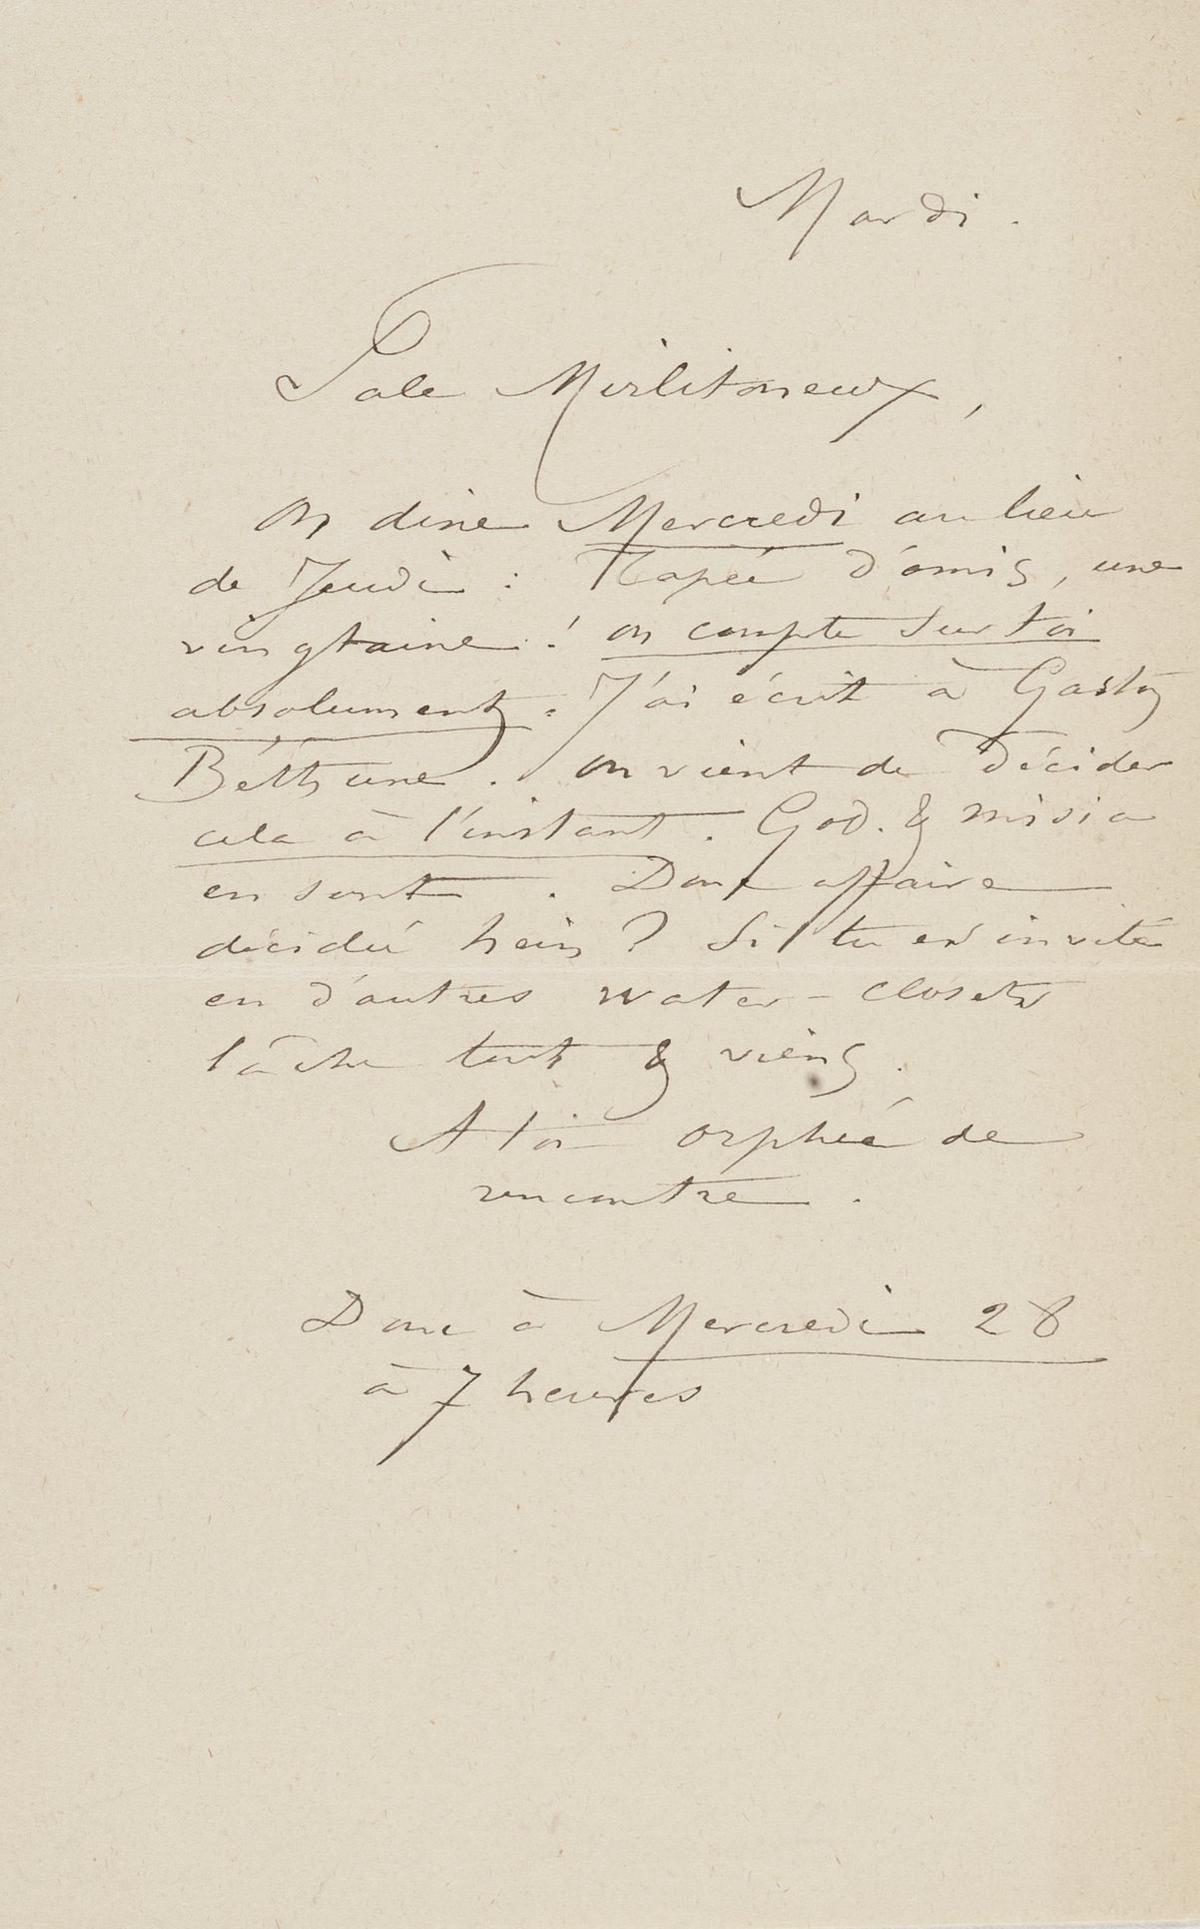 Mardi.
Sale Mirlitoneux,
On dine Mercredi au lieu
de Jeudi : Tapée d'amis, une
vingtaine ! on compte sur toi
absolument. J'ai écrit à Gaston
Béthune. On vient de décider
cela à l'instant. God. & misia
en sont. Donc affaire
décidée hein ? Si tu es invité
en d'autres water-closets
lâche tout & viens.
A toi orphée de
rencontre.
Donc à Mercredi 28
à 7 heures